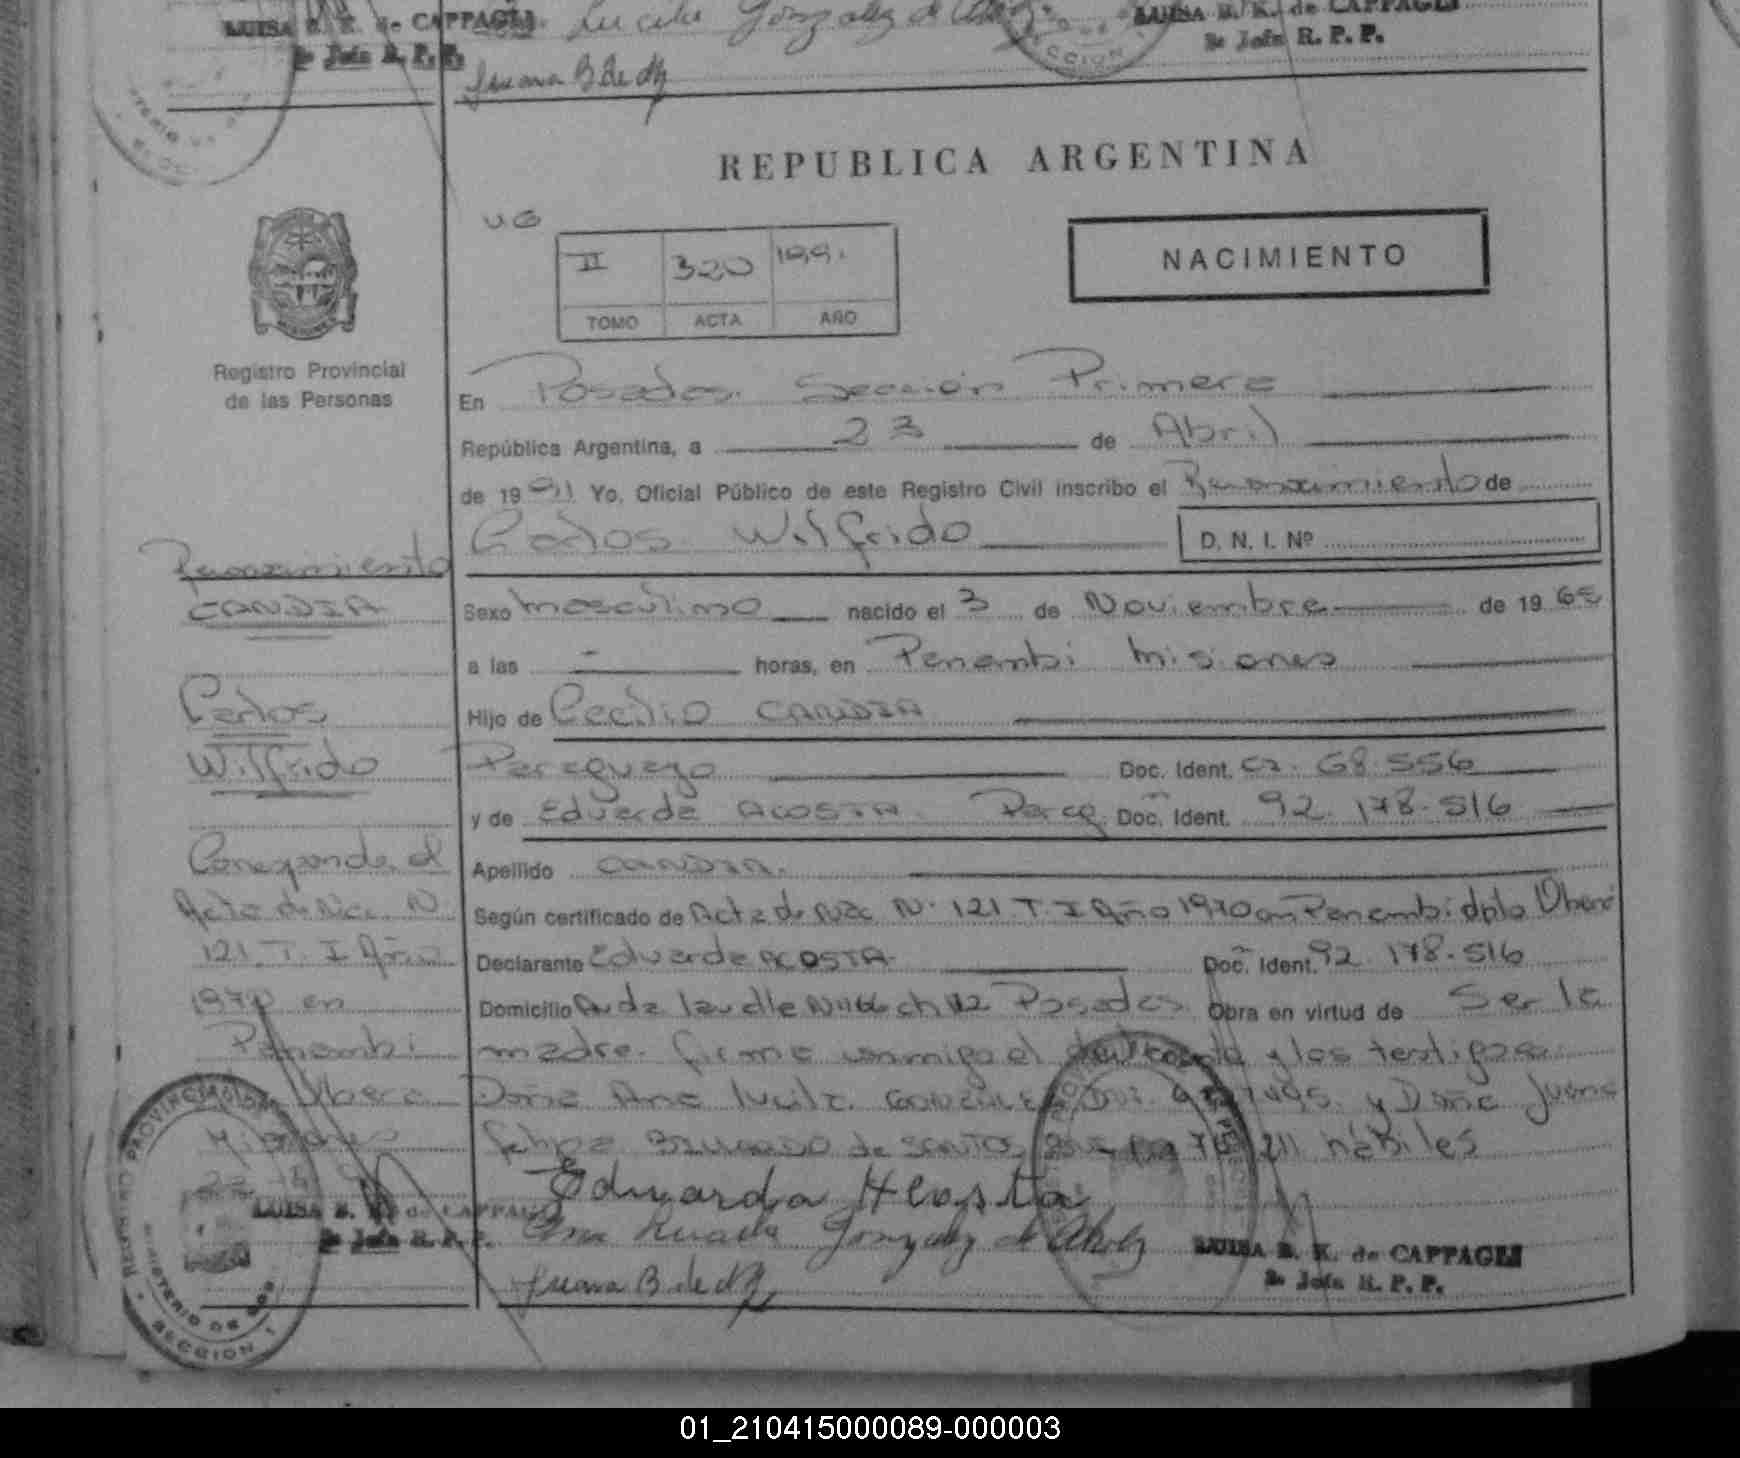 LUISA B. K. de CAPPAGLI
Lucila Gonzalez de
LUISA B. K. de CAPPAGLI
2o Jefe R. P. P.
2o Jefe R. P. P.
Juana B de
SECCION 1
REPUBLICA ARGENTINA
UG
II 320 1991
TOMO ACTA AÑO
NACIMIENTO
Registro Provincial
de las Personas
En Posadas Sección Primera
República Argentina, a 23 de Abril
de 1991 Yo, Oficial Público de este Registro Civil inscribo el Reconocimiento de
Carlos Wilfrido
D. N. I. Nº
Reconocimiento
CANDIA
Carlos
Wilfrido
Corresponde al
Acta de Nac. N·
121 T. I Año
1970 en
Panambi
Misiones
Sexo masculino nacido el 3 de Noviembre de 19
a las - horas, en Panambi Misiones
Hijo de Cecilio CANDIA
Paraguayo Doc. Ident. 68.556
y de Eduarda ACOSTA. Parag. Doc. Ident. 92.178.516
Apellido CANDIA.
Según certificado de Acta de Nac N· 121 T. I Año 1970 en Panambi dpto Oberá
Declarante Eduarda ACOSTA Doc. Ident. 92.178.516
Domicilio ch 112 Posadas Obra en virtud de Ser la
madre. firma conmigo el declarante y los testigos
Doña Ana Lucila GONZALEZ y Doña Juana
de SANTOS hábiles
Eduarda Acosta
Ana Lucila Gonzalez de
Juana B de
LUISA B. K. de CAPPAGLI
2o Jefe R. P. P.
LUISA B. K. de CAPPAGLI
2o Jefe R. P. P.
REGISTRO PROVINCIAL DE LAS
MINISTERIO DE GOB
SECCION 1
01_210415000089-000003